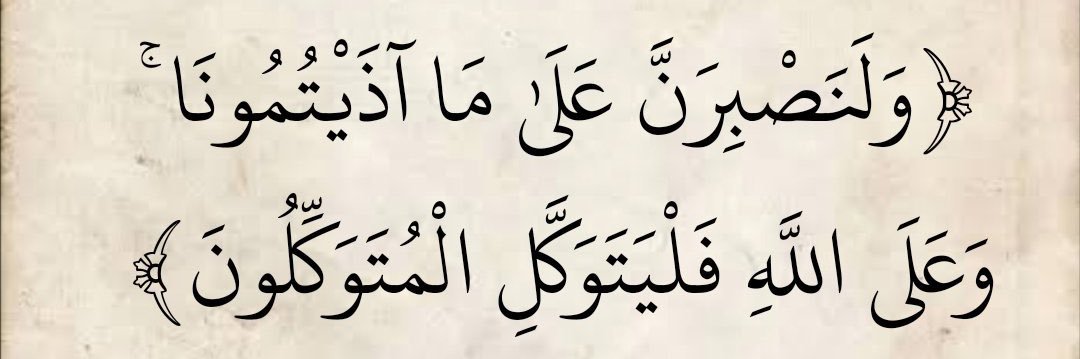 ﴿ وَلَنَصْبِرَنَّ عَلَىٰ مَا آذَيْتُمُونَا ۚ
وَعَلَى اللَّهِ فَلْيَتَوَكَّلِ الْمُتَوَكِّلُونَ ﴾